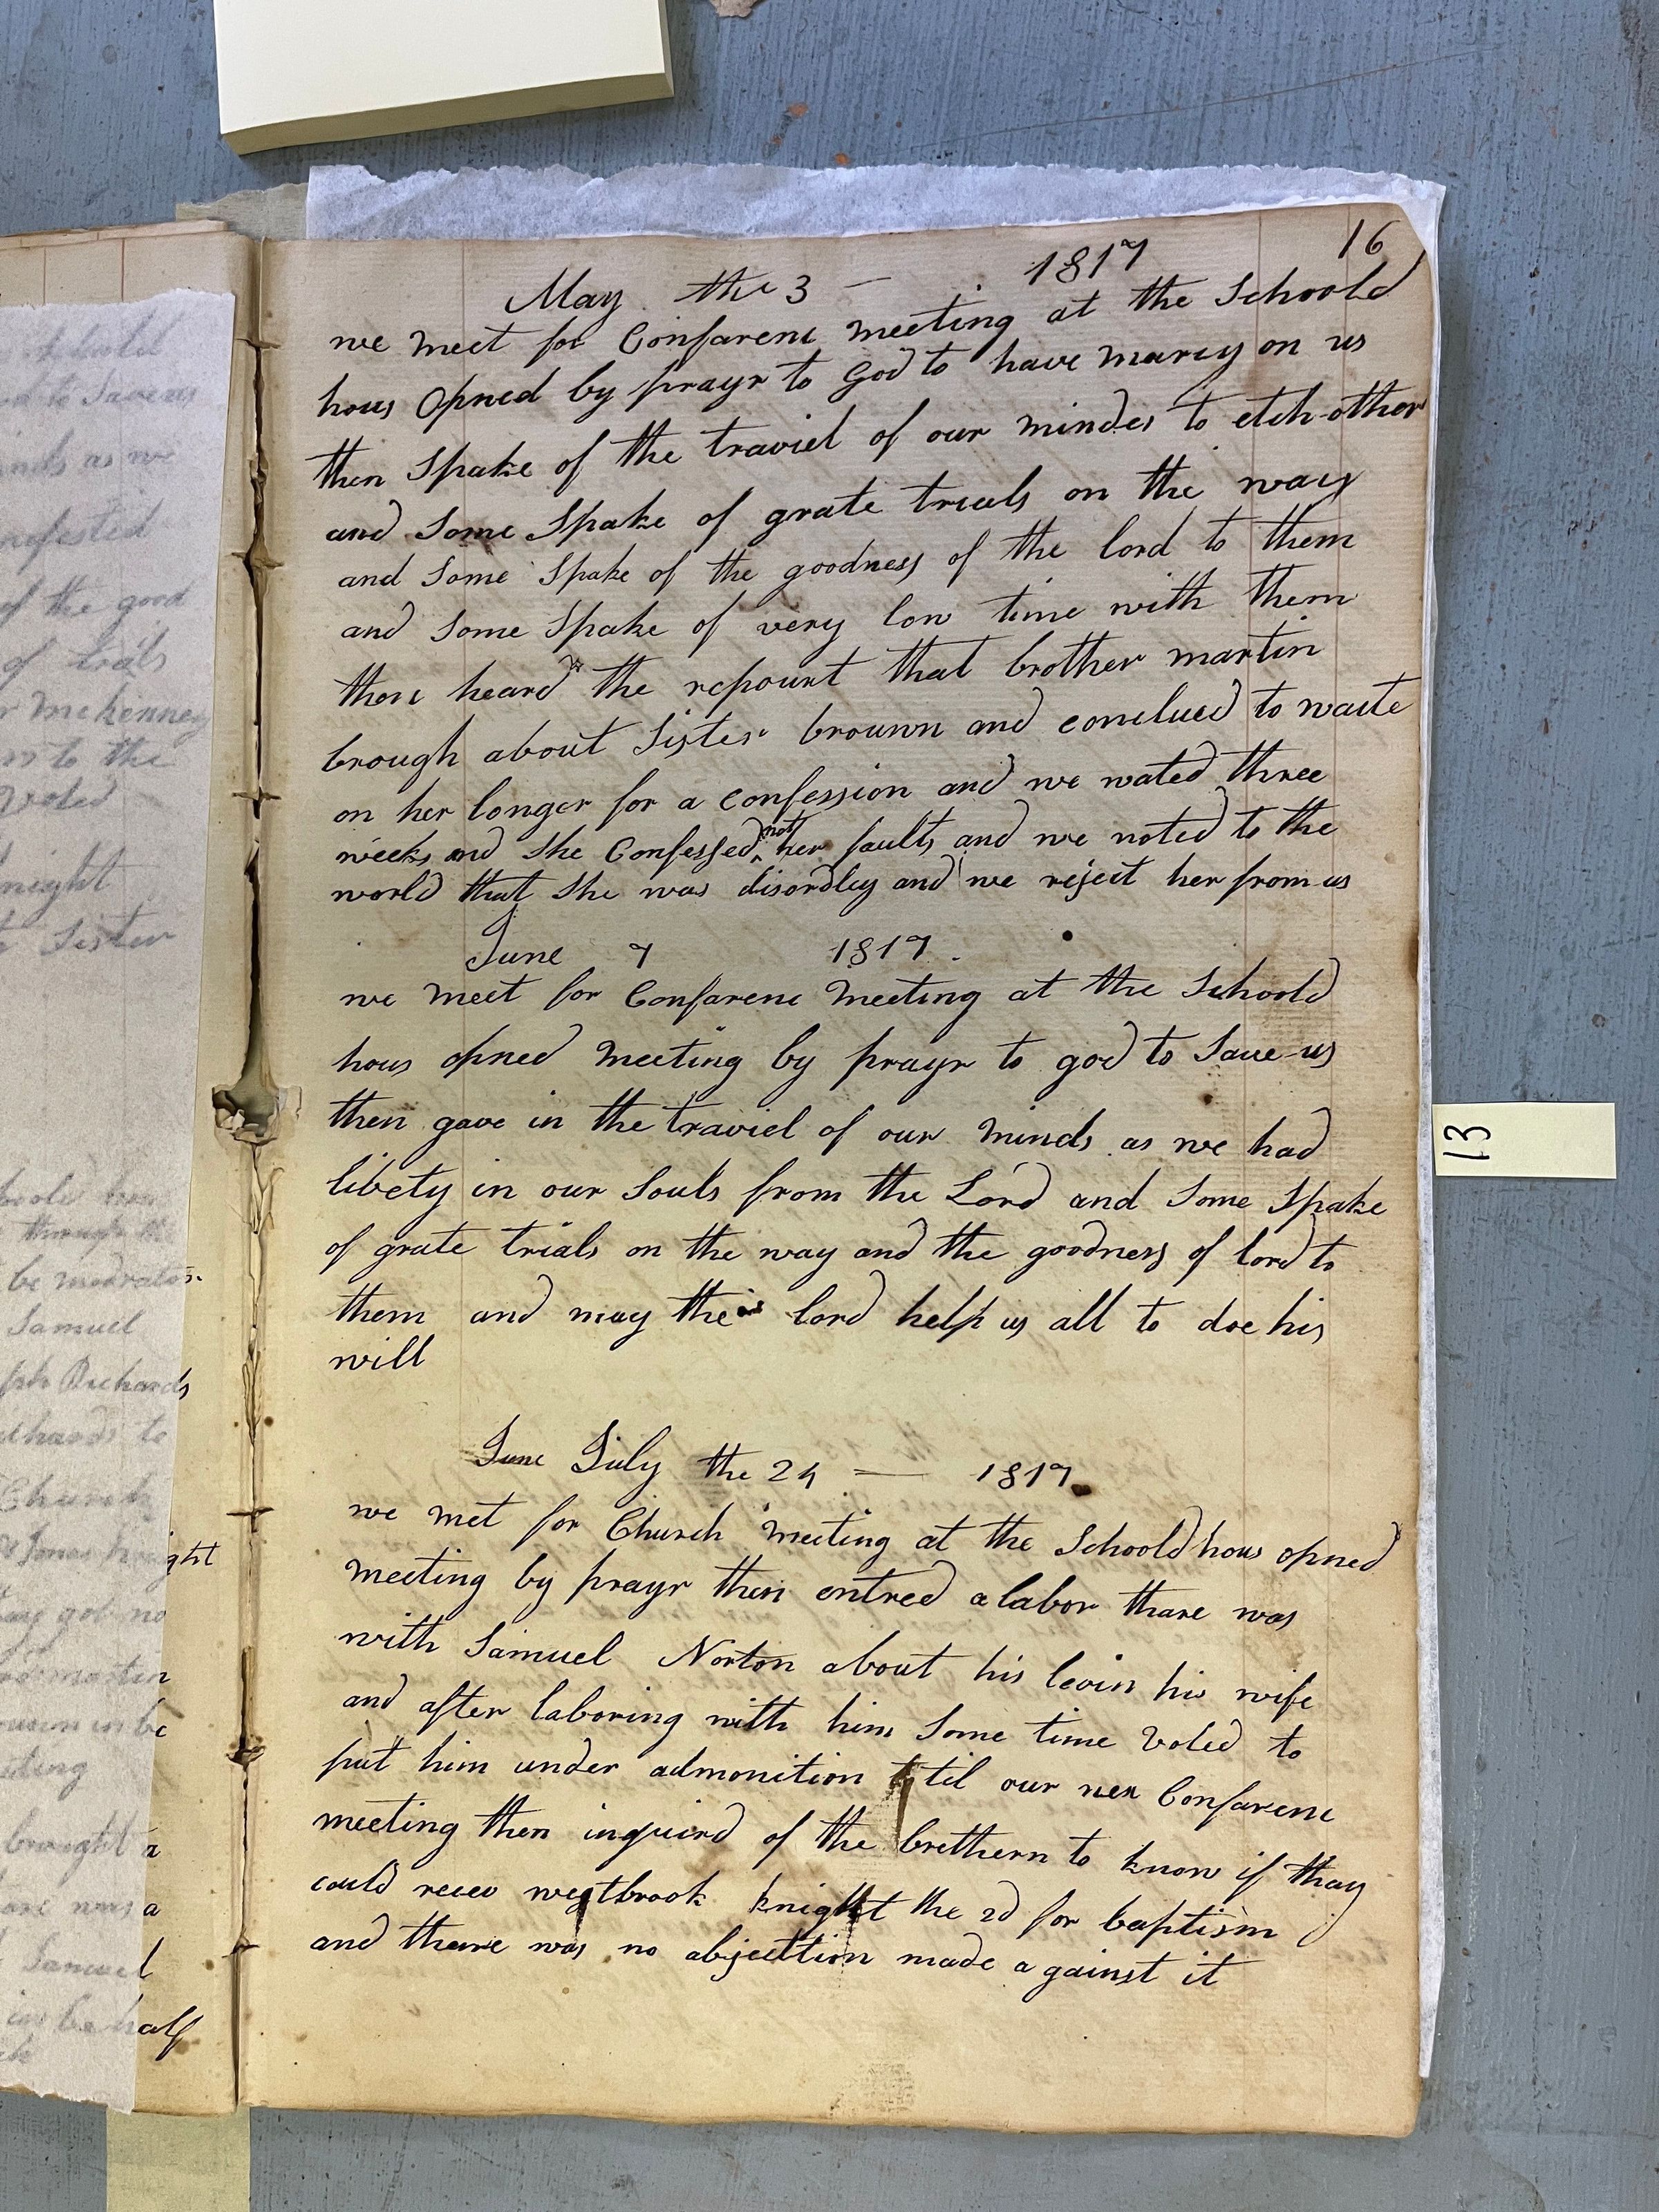 16
May the 3 — 1817
we meet for Confarenc meeting at the Schoold
hous Opned by prayr to God to have marcy on us
then Spake of the traviel of our mindes to etch other
and Some Spake of grate trials on the way
and Some Spake of the goodness of the lord to them
and Some Spake of very low time with them
then heard the repourt that brother martin
brough about Sister brouwn and conclued to waite
on her longer for a confession and we wated three
weeks and She Confessed not her faults and we noted to the
world that She was disordley and we reject her from us
June 7 1817.
we meet for Confarenc Meeting at the Schoold
hous opned Meeting by prayr to god to Save us
then gave in the traviel of our minds as we had
libety in our Souls from the Lord and Some Spake
of grate trials on the way and the goodness of lord to
them and may the lord help us all to doe his
will
June July the 24 — 1817
we met for Church meeting at the Schoold hous opned
meeting by prayr then entred a labor thare was
with Samuel Norton about his levin his wife
and after laboring with him Some time Voted to
put him under admonition til our nex Confarenc
meeting then inquird of the brethern to know if thay
could recev westbrook knight the 2d for baptism
and theare was no abjecttion made a gainst it
13
knight
Sister
be moderator
Samuel
Richards
Church
got no
martin
brought a
Samuel
in be half